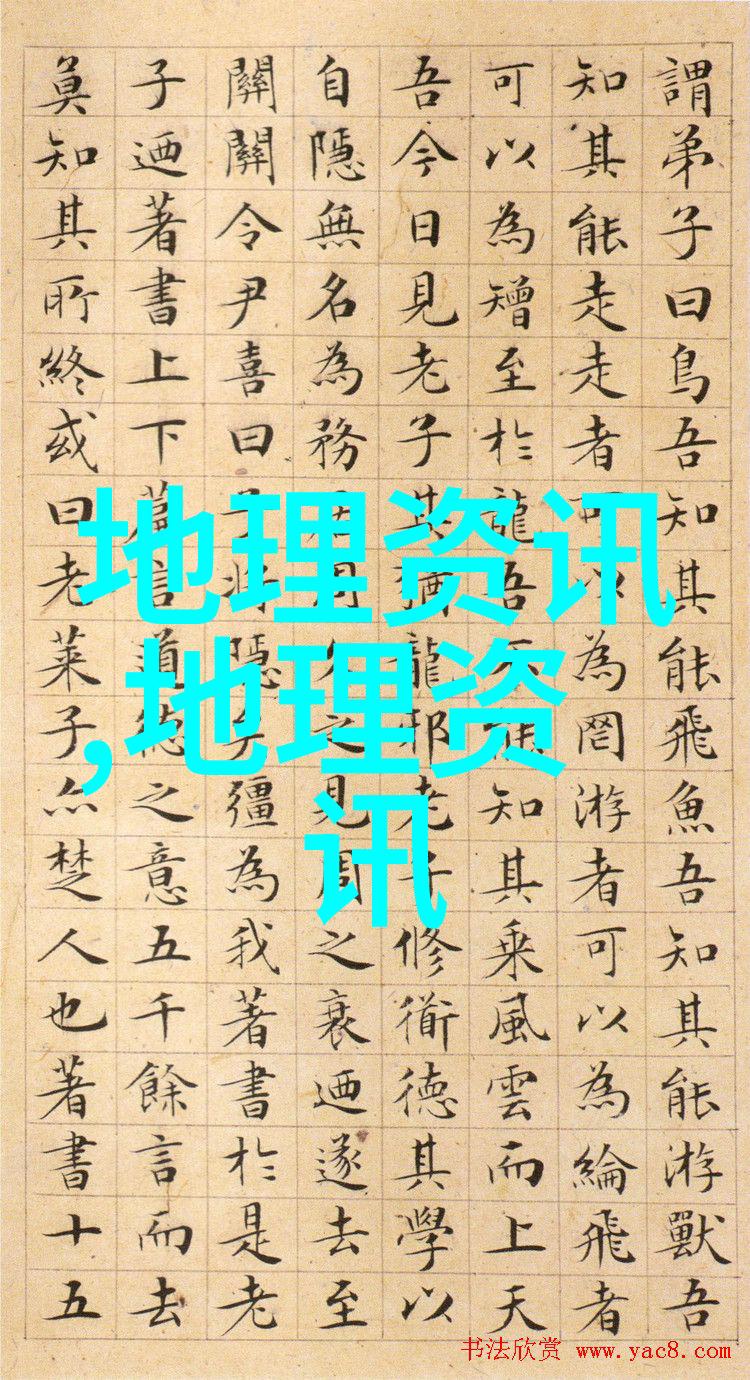 謂弟子曰鳥吾知其能飛魚吾知其能游獸吾
知其能走走者可以為罔游者可以為綸飛者
可以為矰至於龍吾不能知其乘風雲而上天
吾今日見老子其猶龍邪老子修衜德其學以
自隱無名為務居周久之見周之衰迺遂去至
關關令尹喜曰子將隱矣彊為我著書於是老
子迺著書上下篇言道德之意五千餘言而去
莫知其所終或曰老莱子亦楚人也著書十五
地理资讯
,地理资
讯
书法欣赏 www.yac8.com